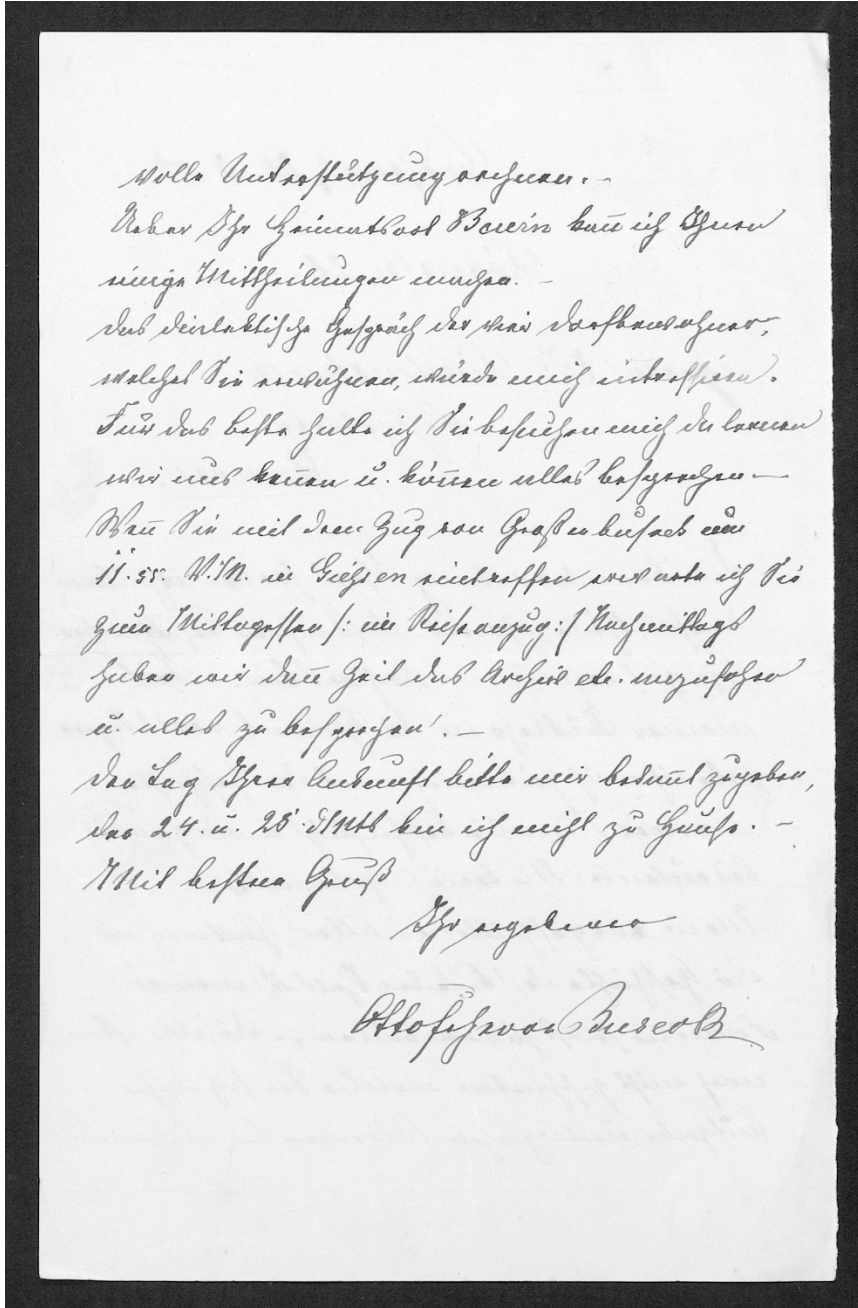 volle Unterstützung rechnen. –
Ueber Ihr Heimatsort Beuern kañ ich Ihnen
einige Mittheilungen machen. –
Das dialektische Gespräch der vier Dorfbewohner,
welches Sie erwähnen, würde mich intressiren.
Für das beste halte ich Sie besuchen mich da lernen
wir uns keñen u. köñen alles besprechen –
Weñ Sie mit dem Zug von Großenbuseck um
11.55. V.M. in Gießen eintreffen erwarte ich Sie
zum Mittagessen /: im Reiseanzug :/ Nachmittags
haben wir dañ Zeit das Archiv etc. anzusehen
u. alles zu besprechen. –
Den Tag Ihrer Ankunft bitte mir bekañt zugeben,
den 24. u. 25. d Mts bin ich nicht zu Hause. –
Mit bestem Gruß
Ihr ergebener
Otto Frhr von Buseck